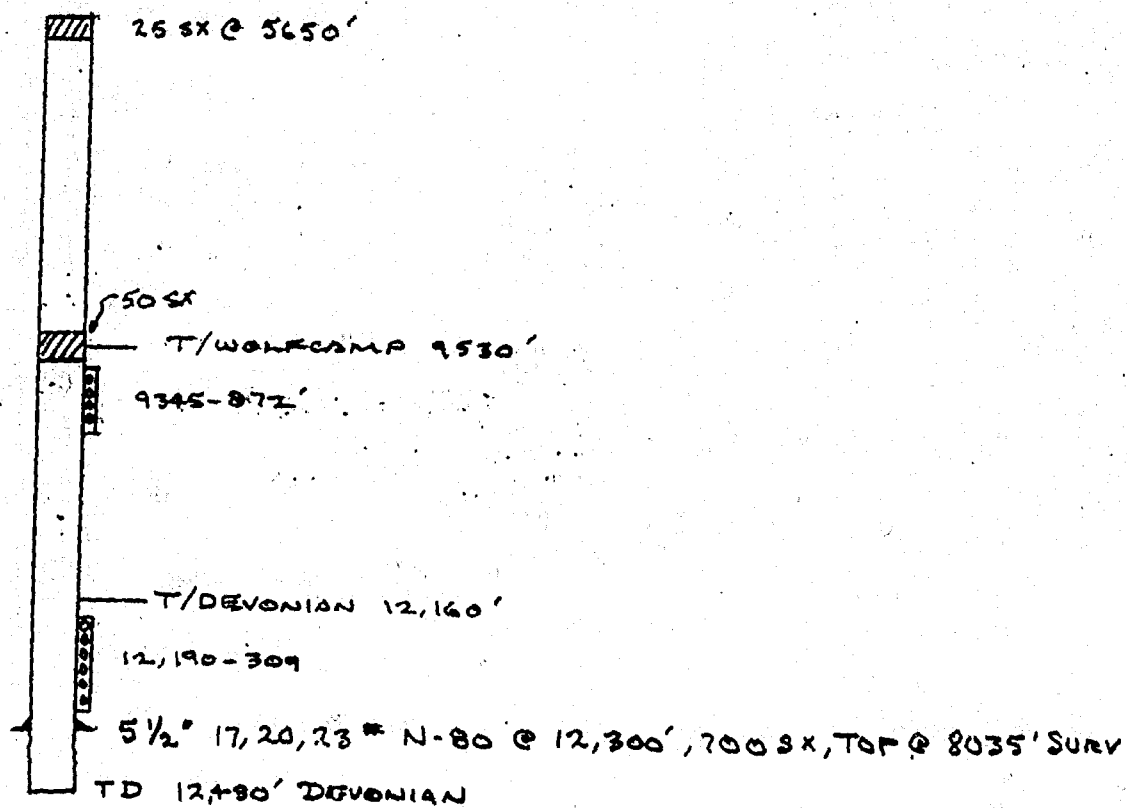 25 SX @ 5650'
50 SX
T/WOLFCAMP 9530'
9345-872'
T/DEVONIAN 12,160'
12,190-309
5½" 17,20,23# N-80 @ 12,300', 700 SX, TOP @ 8035' SURV
TD 12,480' DEVONIAN